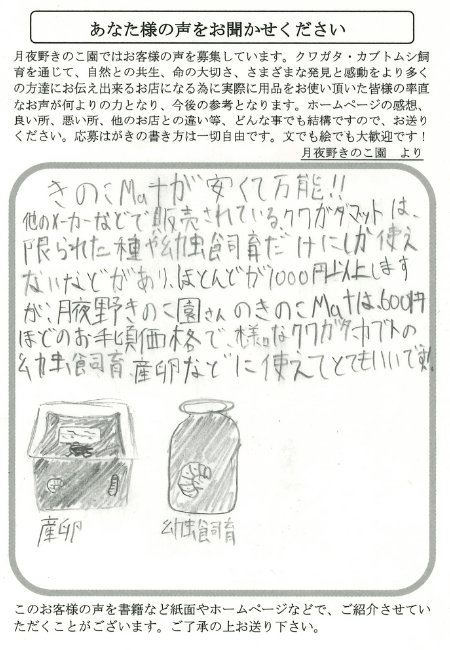 あなた様の声をお聞かせください
月夜野きのこ園ではお客様の声を募集しています。クワガタ・カブトムシ飼
育を通じて、自然との共生、命の大切さ、さまざまな発見と感動をより多く
の方達にお伝え出来るお店になる為に実際に用品をお使い頂いた皆様の率直
なお声が何よりの力となり、今後の参考となります。ホームページの感想、
良い所、悪い所、他のお店との違い等、どんな事でも結構ですので、お送り
ください。応募はがきの書き方は一切自由です。文でも絵でも大歓迎です！
月夜野きのこ園　より
きのこMatが安くて万能!!
他のメーカーなどで販売されているクワガタマットは、
限られた種や幼虫飼育だけにしか使え
ないなどがあり、ほとんどが1000円以上します
が、月夜野きのこ園さんのきのこMatは、600円
ほどのお手頃価格で、様々なクワガタ、カブトの
幼虫飼育、産卵などに使えてとてもいいです!
産卵
幼虫飼育
このお客様の声を書籍など紙面やホームページなどで、ご紹介させてい
ただくことがございます。ご了承の上お送り下さい。